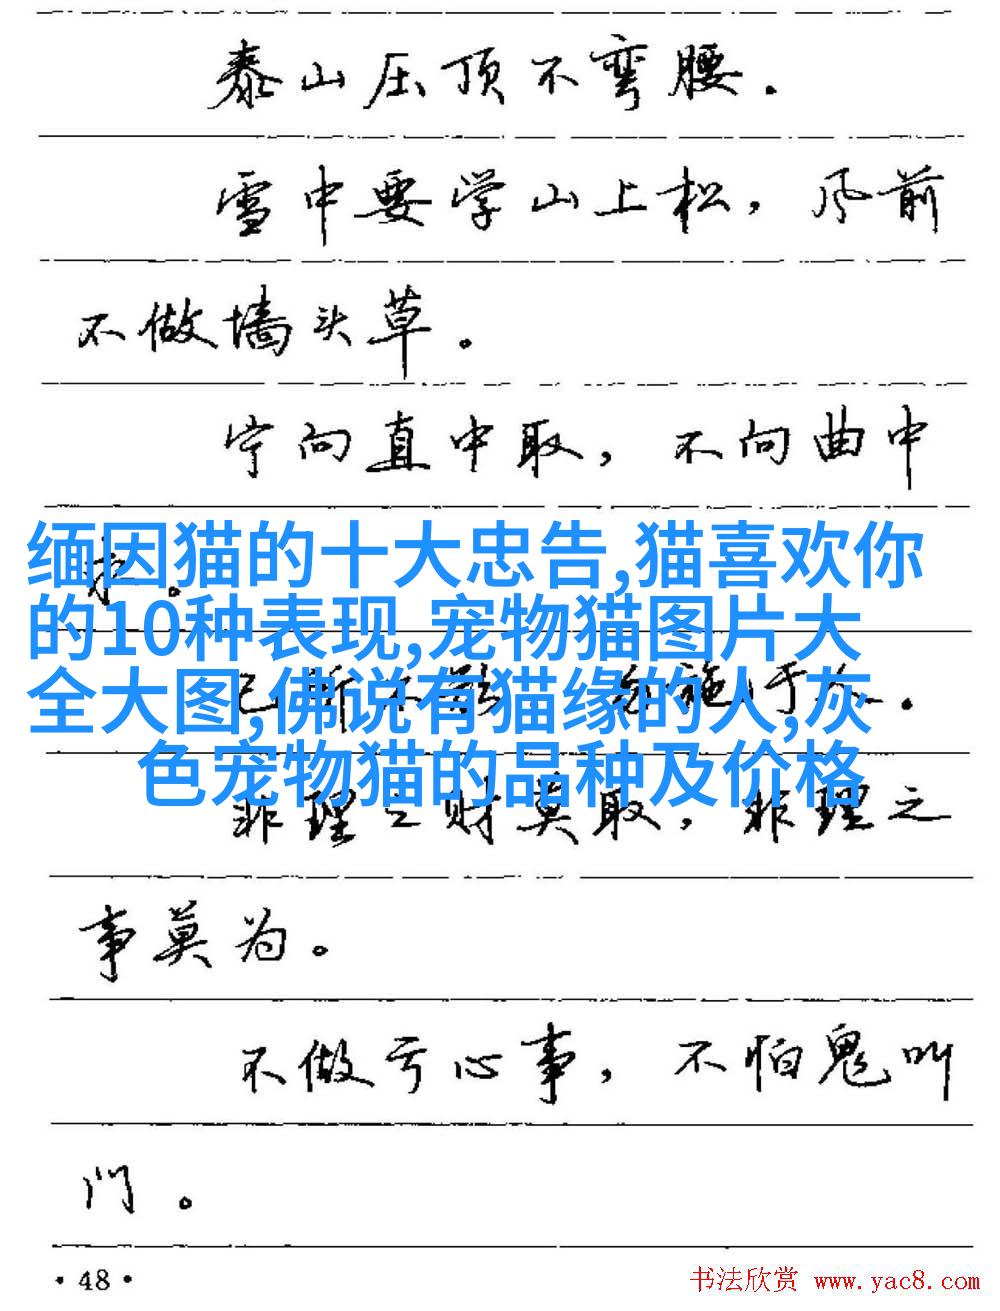 泰山压顶不弯腰.
雪中要学山上松，风前
不做墙头草。
宁向直中取，不向曲中
求。
缅因猫的十大忠告,猫喜欢你
的10种表现,宠物猫图片大
全大图,佛说有猫缘的人,灰
色宠物猫的品种及价格
己所不欲 勿施于人.
非理之财莫取，非理之
事莫为。
不做亏心事，不怕鬼叫
门。
·48·
书法欣赏 www.yac8.com